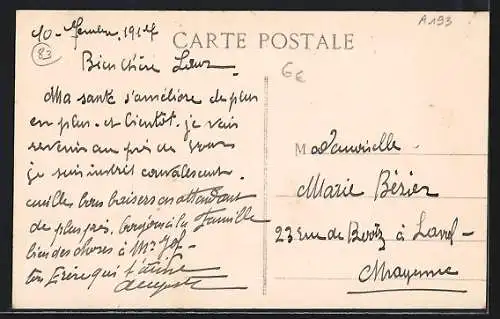 CARTE POSTALE
A193
83
6€
Bien Chère Sœur
Ma santé s'améliore de plus
en plus. et bientôt. je vais
revenir au près de vous
je suis
mille bons baisers en attendant
de plus près. bonjour à la famille
bien des choses à
ton Frère qui t'aime
Auguste
Mademoiselle
Marie Bézier
23 rue de à Laval -
Mayenne